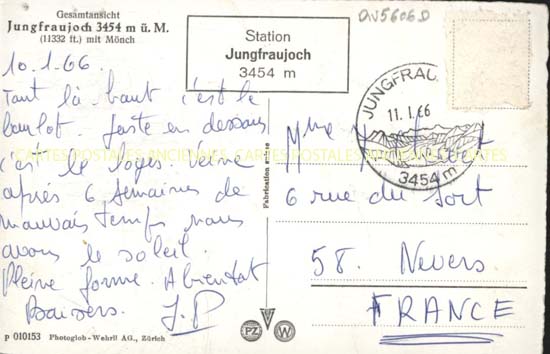 Gesamtansicht
Jungfraujoch 3454 m ü. M.
(11332 ft.) mit Mönch
Station
Jungfraujoch
3454 m
av5606D
JUNGFRAU
11. I. 66
3454 m
10.1.66.
Tout là haut c'est le
boulot. Juste en dessous
c'est le logis. Veine
après 6 semaines de
mauvais temps nous
avons le soleil.
Pleine forme. A bientot
Baisers. J.P
CARTES POSTALES ANCIENNES
Mme
6 rue du fort
58. Nevers
FRANCE
PZ
W
p 010153 Photoglob-Wehrli AG., Zürich